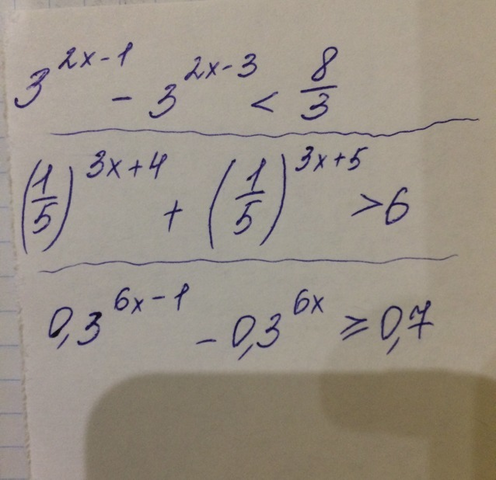 3^{2x-1} - 3^{2x-3} < \frac{8}{3}
(\frac{1}{5})^{3x+4} + (\frac{1}{5})^{3x+5} > 6
0,3^{6x-1} - 0,3^{6x} ⩾ 0,7